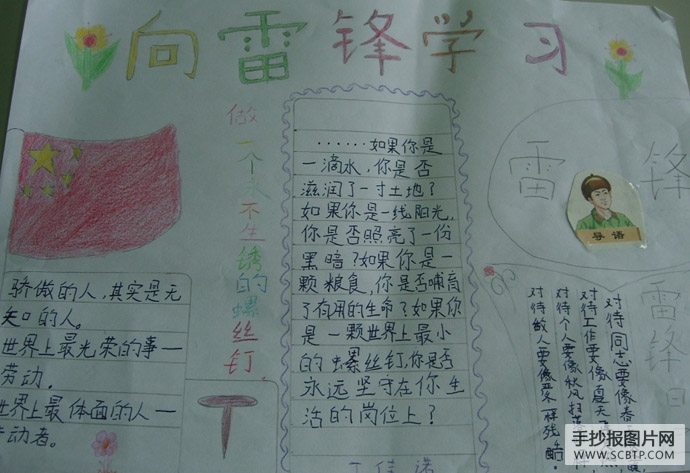 向雷锋学习
做一个永不生绣的螺丝钉。
骄傲的人,其实是无
知的人。
世界上最光荣的事一
劳动。
世界上最体面的人一
动者。
……如果你是
一滴水,你是否
滋润了一寸土地?
如果你是一线阳光,
你是否照亮了一份
黑暗?如果你是一
颗粮食,你是否哺育
了有用的生命?如果你
是一颗世界上最小
的螺丝钉,你是否
永远坚守在你生
活的岗位上?
雷锋
导语
雷锋日
对待同志要像春
对待工作要像夏天
对待个人要像秋风扫
对待敌人要像严
样残酷!
手抄报图片网
WWW.SCBTP.COM